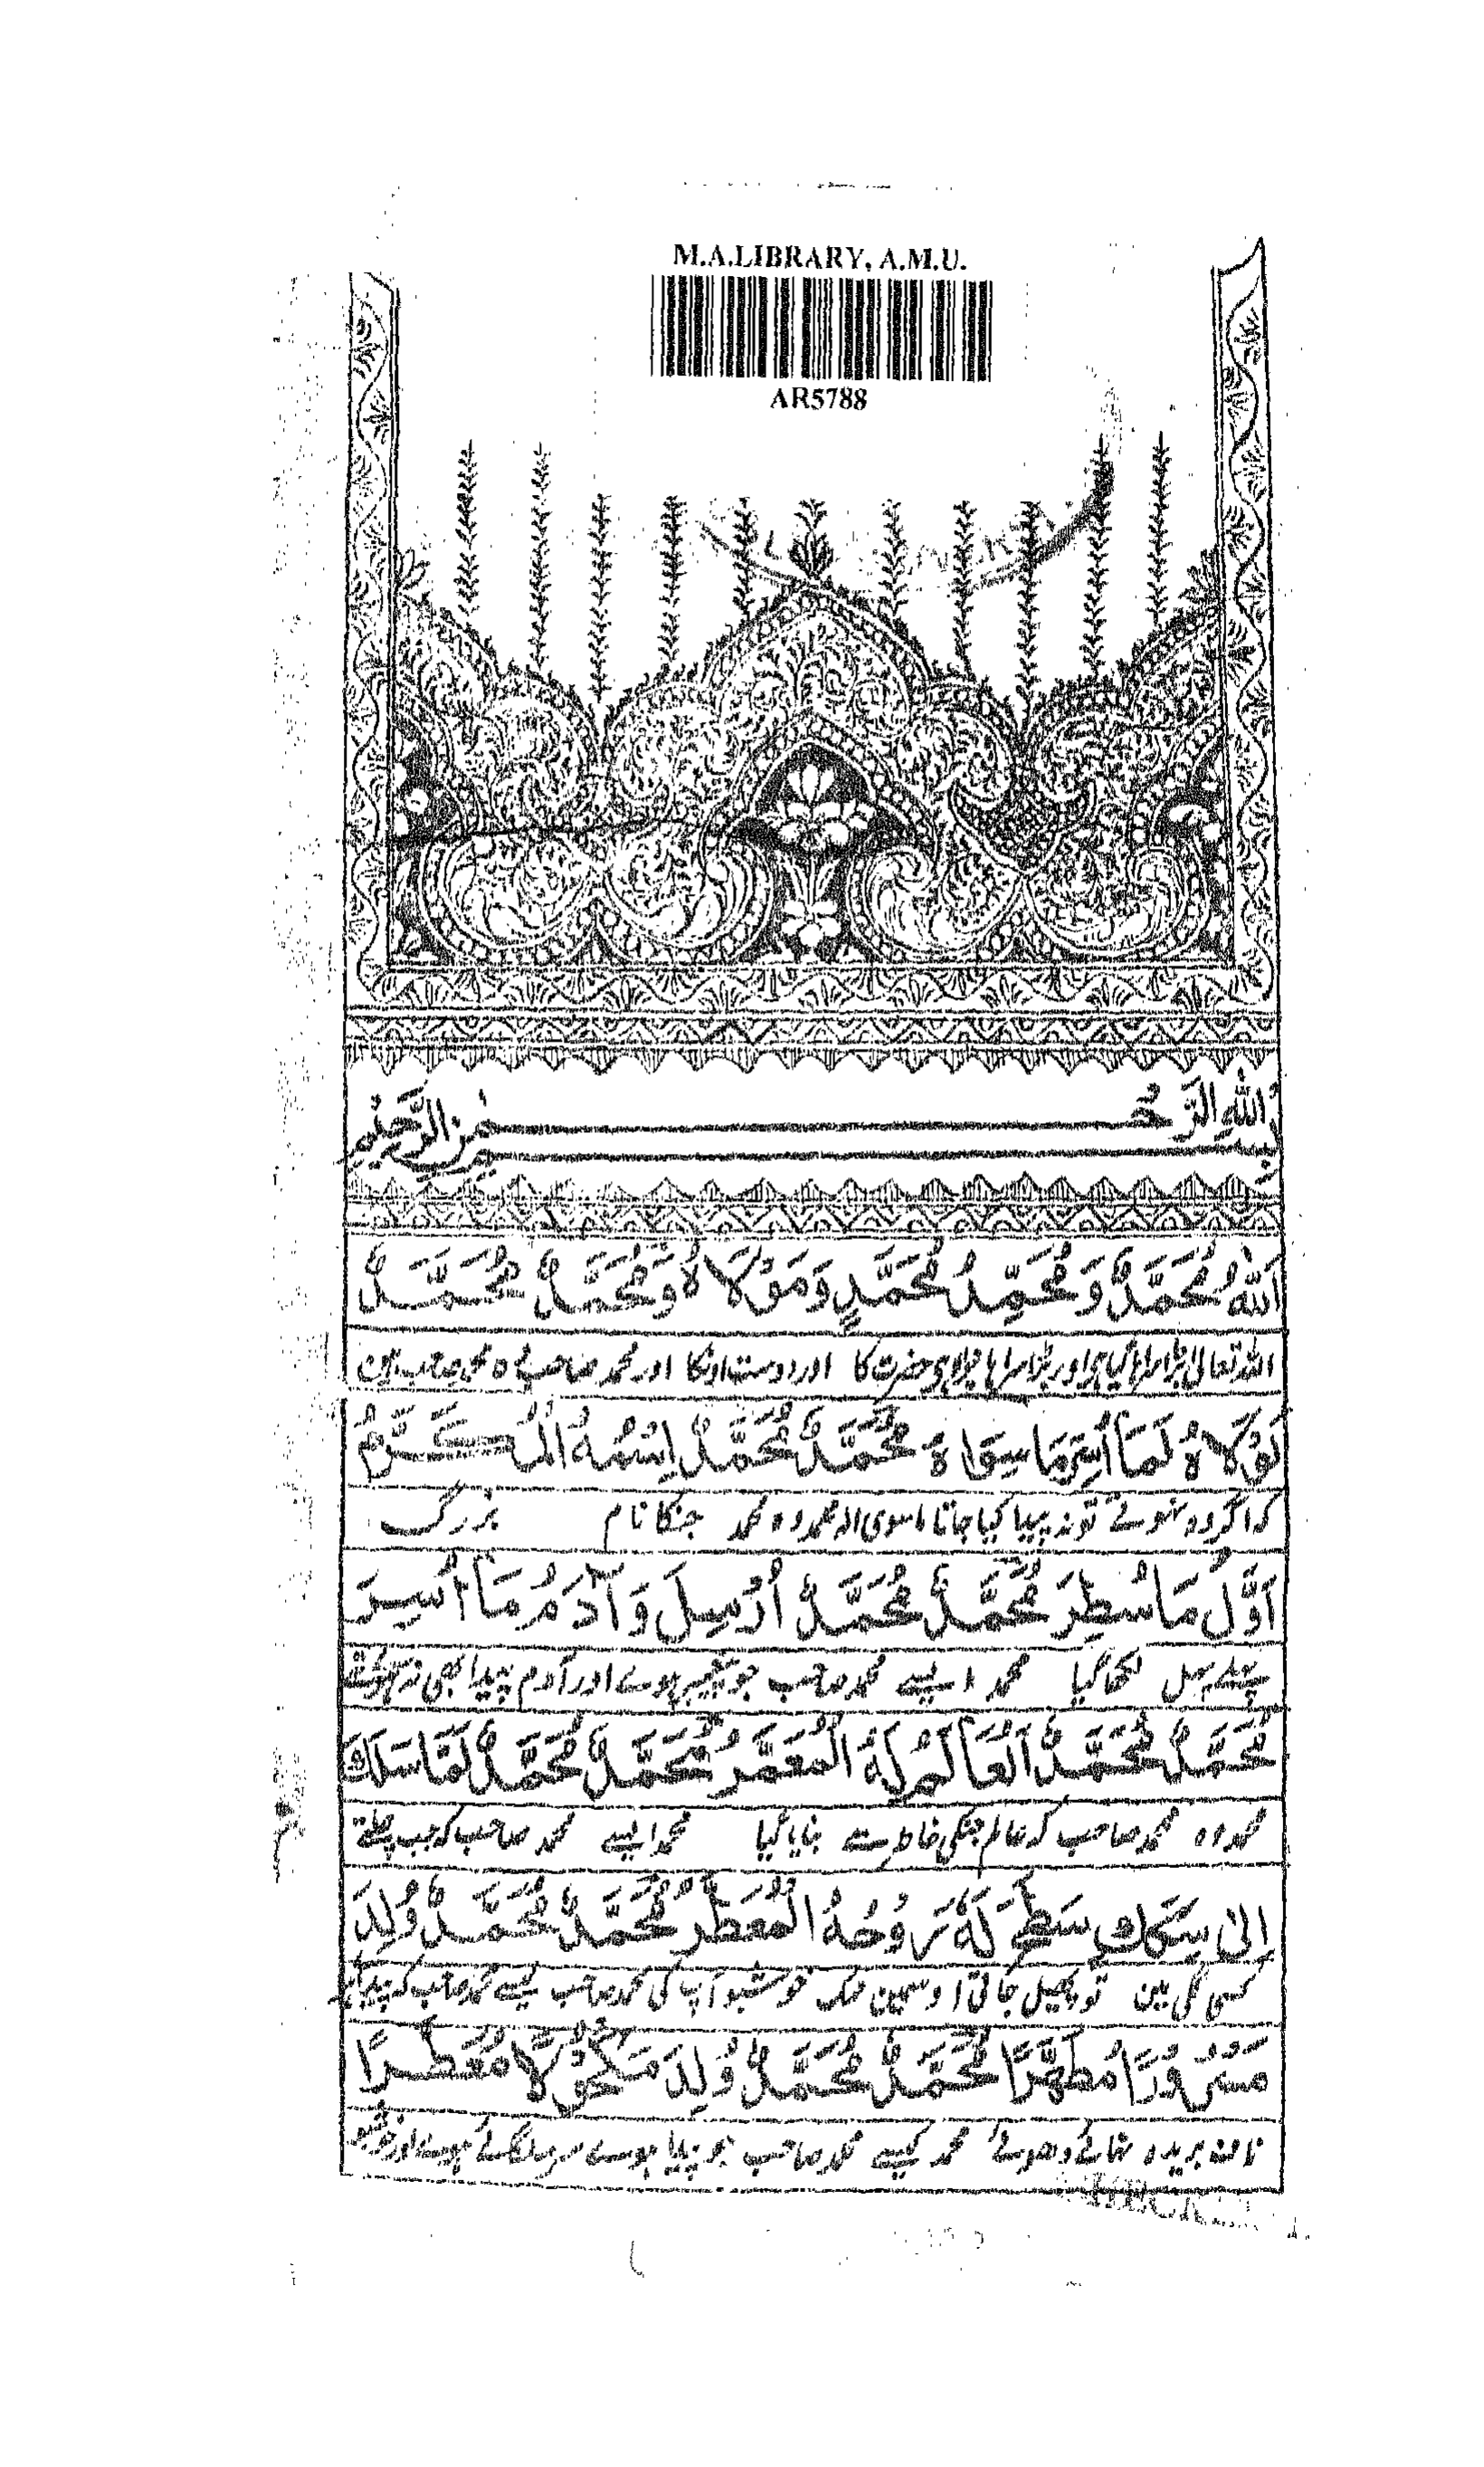 M.A.LIBRARY, A.M.U.
AR5788
بِسْمِ اللهِ الرَّحْمٰنِ الرَّحِيْمِ
اَللهُ مُحَمَّدٌ وَمُحَمِّدُ مُحَمَّدٍ وَمَوْلَاهُ وَمُحَمَّدٌ مُحَمَّدٌ
اللہ تعالی بڑا سراہا گیا ہی اور بڑا سراہنیوالا ہی حضرت کا اور دوست اونکا اور محمد صاحب وہ محمد صاحب ہین
لَوْلَاهُ لَمَا اُسِرَ مَا سِوَاهُ مُحَمَّدٌ مُحَمَّدٌ اِسْمُهُ الْمُكَرَّمُ
کہ اگر وہ نہوتے تو نہ پیدا کیا جاتا ماسوی اللہ محمد وہ محمد جنکا نام بزرگ
اَوَّلُ مَا سُطِرَ مُحَمَّدٌ مُحَمَّدٌ اُرْسِلَ وَآدَمُ مَا اُسِرَ
پہلے پہل لکھا گیا محمد ایسے محمد صاحب جو پیغمبر ہوے اور آدم پیدا بھی نہ ہوئے تھے
مُحَمَّدٌ مُحَمَّدٌ اَلْعَالَمُ لَهُ الْمُعَمَّرُ مُحَمَّدٌ مُحَمَّدٌ لَمَّا سَلَكَ
محمد وہ محمد صاحب کہ عالم جنکی خاطر سے بنایا گیا محمد ایسے محمد صاحب کہ جب چلتے
اِلٰى سِكَكٍ سَطَعَ لَهُ رَوْحُهُ الْمُعَطَّرُ مُحَمَّدٌ مُحَمَّدٌ وُلِدَ
کسی گلی مین تو پھیل جاتی اوسمین مہک خوشبو آپ کی محمد صاحب کیسے محمد صاحب کہ پیدا
مَسْرُوْرًا مُطَهَّرًا مُحَمَّدٌ مُحَمَّدٌ وُلِدَ مَكْحُوْلًا مُعَطَّرًا
ناف بریدہ نہائے دھوئے محمد کیسے محمد صاحب جو پیدا ہوے سرمہ لگے ہوے اور خوشبو